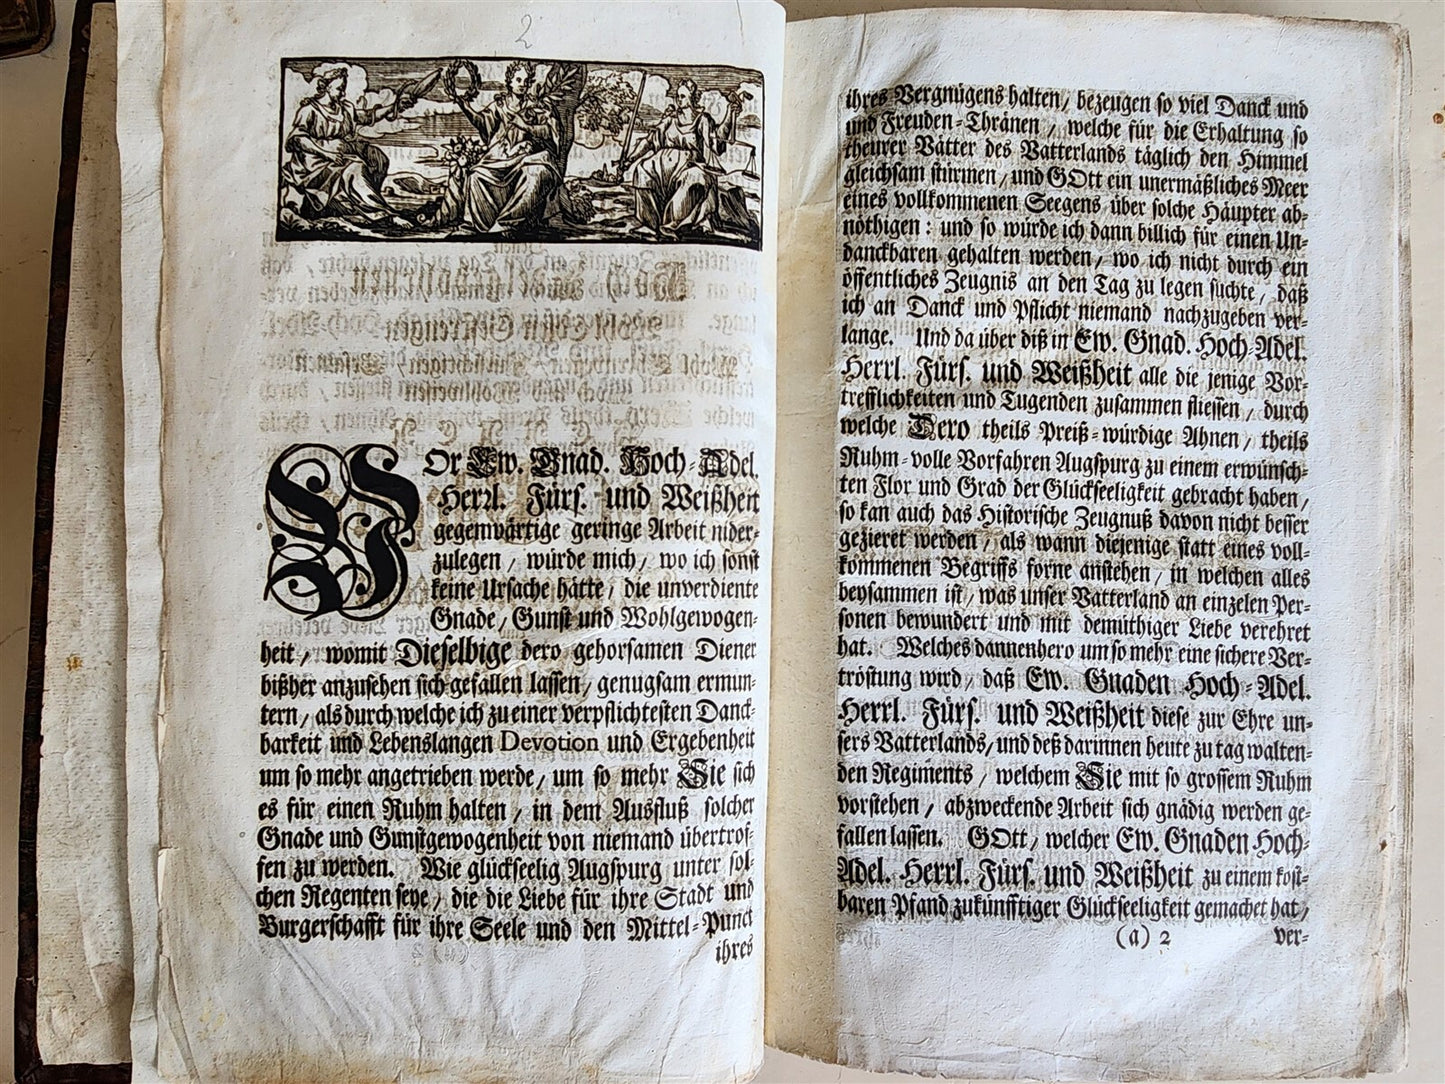 2
VOr Ew. Gnad. Hoch-Adel.
Herrl. Fürs. und Weißheit
gegenwärtige geringe Arbeit nider-
zulegen / würde mich / wo ich sonst
keine Ursache hätte / die unverdiente
Gnade / Gunst und Wohlgewogen-
heit / womit Dieselbige dero gehorsamen Diener
bißher anzusehen sich gefallen lassen / genugsam ermun-
tern / als durch welche ich zu einer verpflichtesten Danck-
barkeit und Lebenslangen Devotion und Ergebenheit
um so mehr angetrieben werde / um so mehr Sie sich
es für einen Ruhm halten / in dem Ausfluß solcher
Gnade und Gunstgewogenheit von niemand übertrof-
fen zu werden. Wie glückseelig Augspurg unter sol-
chen Regenten seye / die die Liebe für ihre Stadt und
Burgerschafft für ihre Seele und den Mittel-Punct
ihres
ihres Vergnügens halten / bezeugen so viel Danck und
und Freuden-Thränen / welche für die Erhaltung so
theurer Vätter des Vatterlands täglich den Himmel
gleichsam stürmen / und GOtt ein unermäßliches Meer
eines vollkommenen Seegens über solche Häupter ab-
nöthigen: und so würde ich dann billich für einen Un-
danckbaren gehalten werden / wo ich nicht durch ein
öffentliches Zeugnis an den Tag zu legen suchte / daß
ich an Danck und Pflicht niemand nachzugeben ver-
lange. Und da über diß in Ew. Gnad. Hoch-Adel.
Herrl. Fürs. und Weißheit alle die jenige Vor-
trefflichkeiten und Tugenden zusammen fliessen / durch
welche Dero theils Preiß-würdige Ahnen / theils
Ruhm-volle Vorfahren Augspurg zu einem erwünsch-
ten Flor und Grad der Glückseeligkeit gebracht haben /
so kan auch das Historische Zeugnuß davon nicht besser
gezieret werden / als wann diejenige statt eines voll-
kommenen Begriffs forne anstehen / in welchen alles
beysammen ist / was unser Vatterland an einzelen Per-
sonen bewundert und mit demüthiger Liebe verehret
hat. Welches dannenhero um so mehr eine sichere Ver-
tröstung wird / daß Ew. Gnaden Hoch-Adel.
Herrl. Fürs. und Weißheit diese zur Ehre un-
sers Vatterlands / und deß darinnen heute zu tag walten-
den Regiments / welchem Sie mit so grossem Ruhm
vorstehen / abzweckende Arbeit sich gnädig werden ge-
fallen lassen. GOtt / welcher Ew. Gnaden Hoch-
Adel. Herrl. Fürs. und Weißheit zu einem kost-
baren Pfand zukünfftiger Glückseeligkeit gemachet hat /
(a) 2 ver-